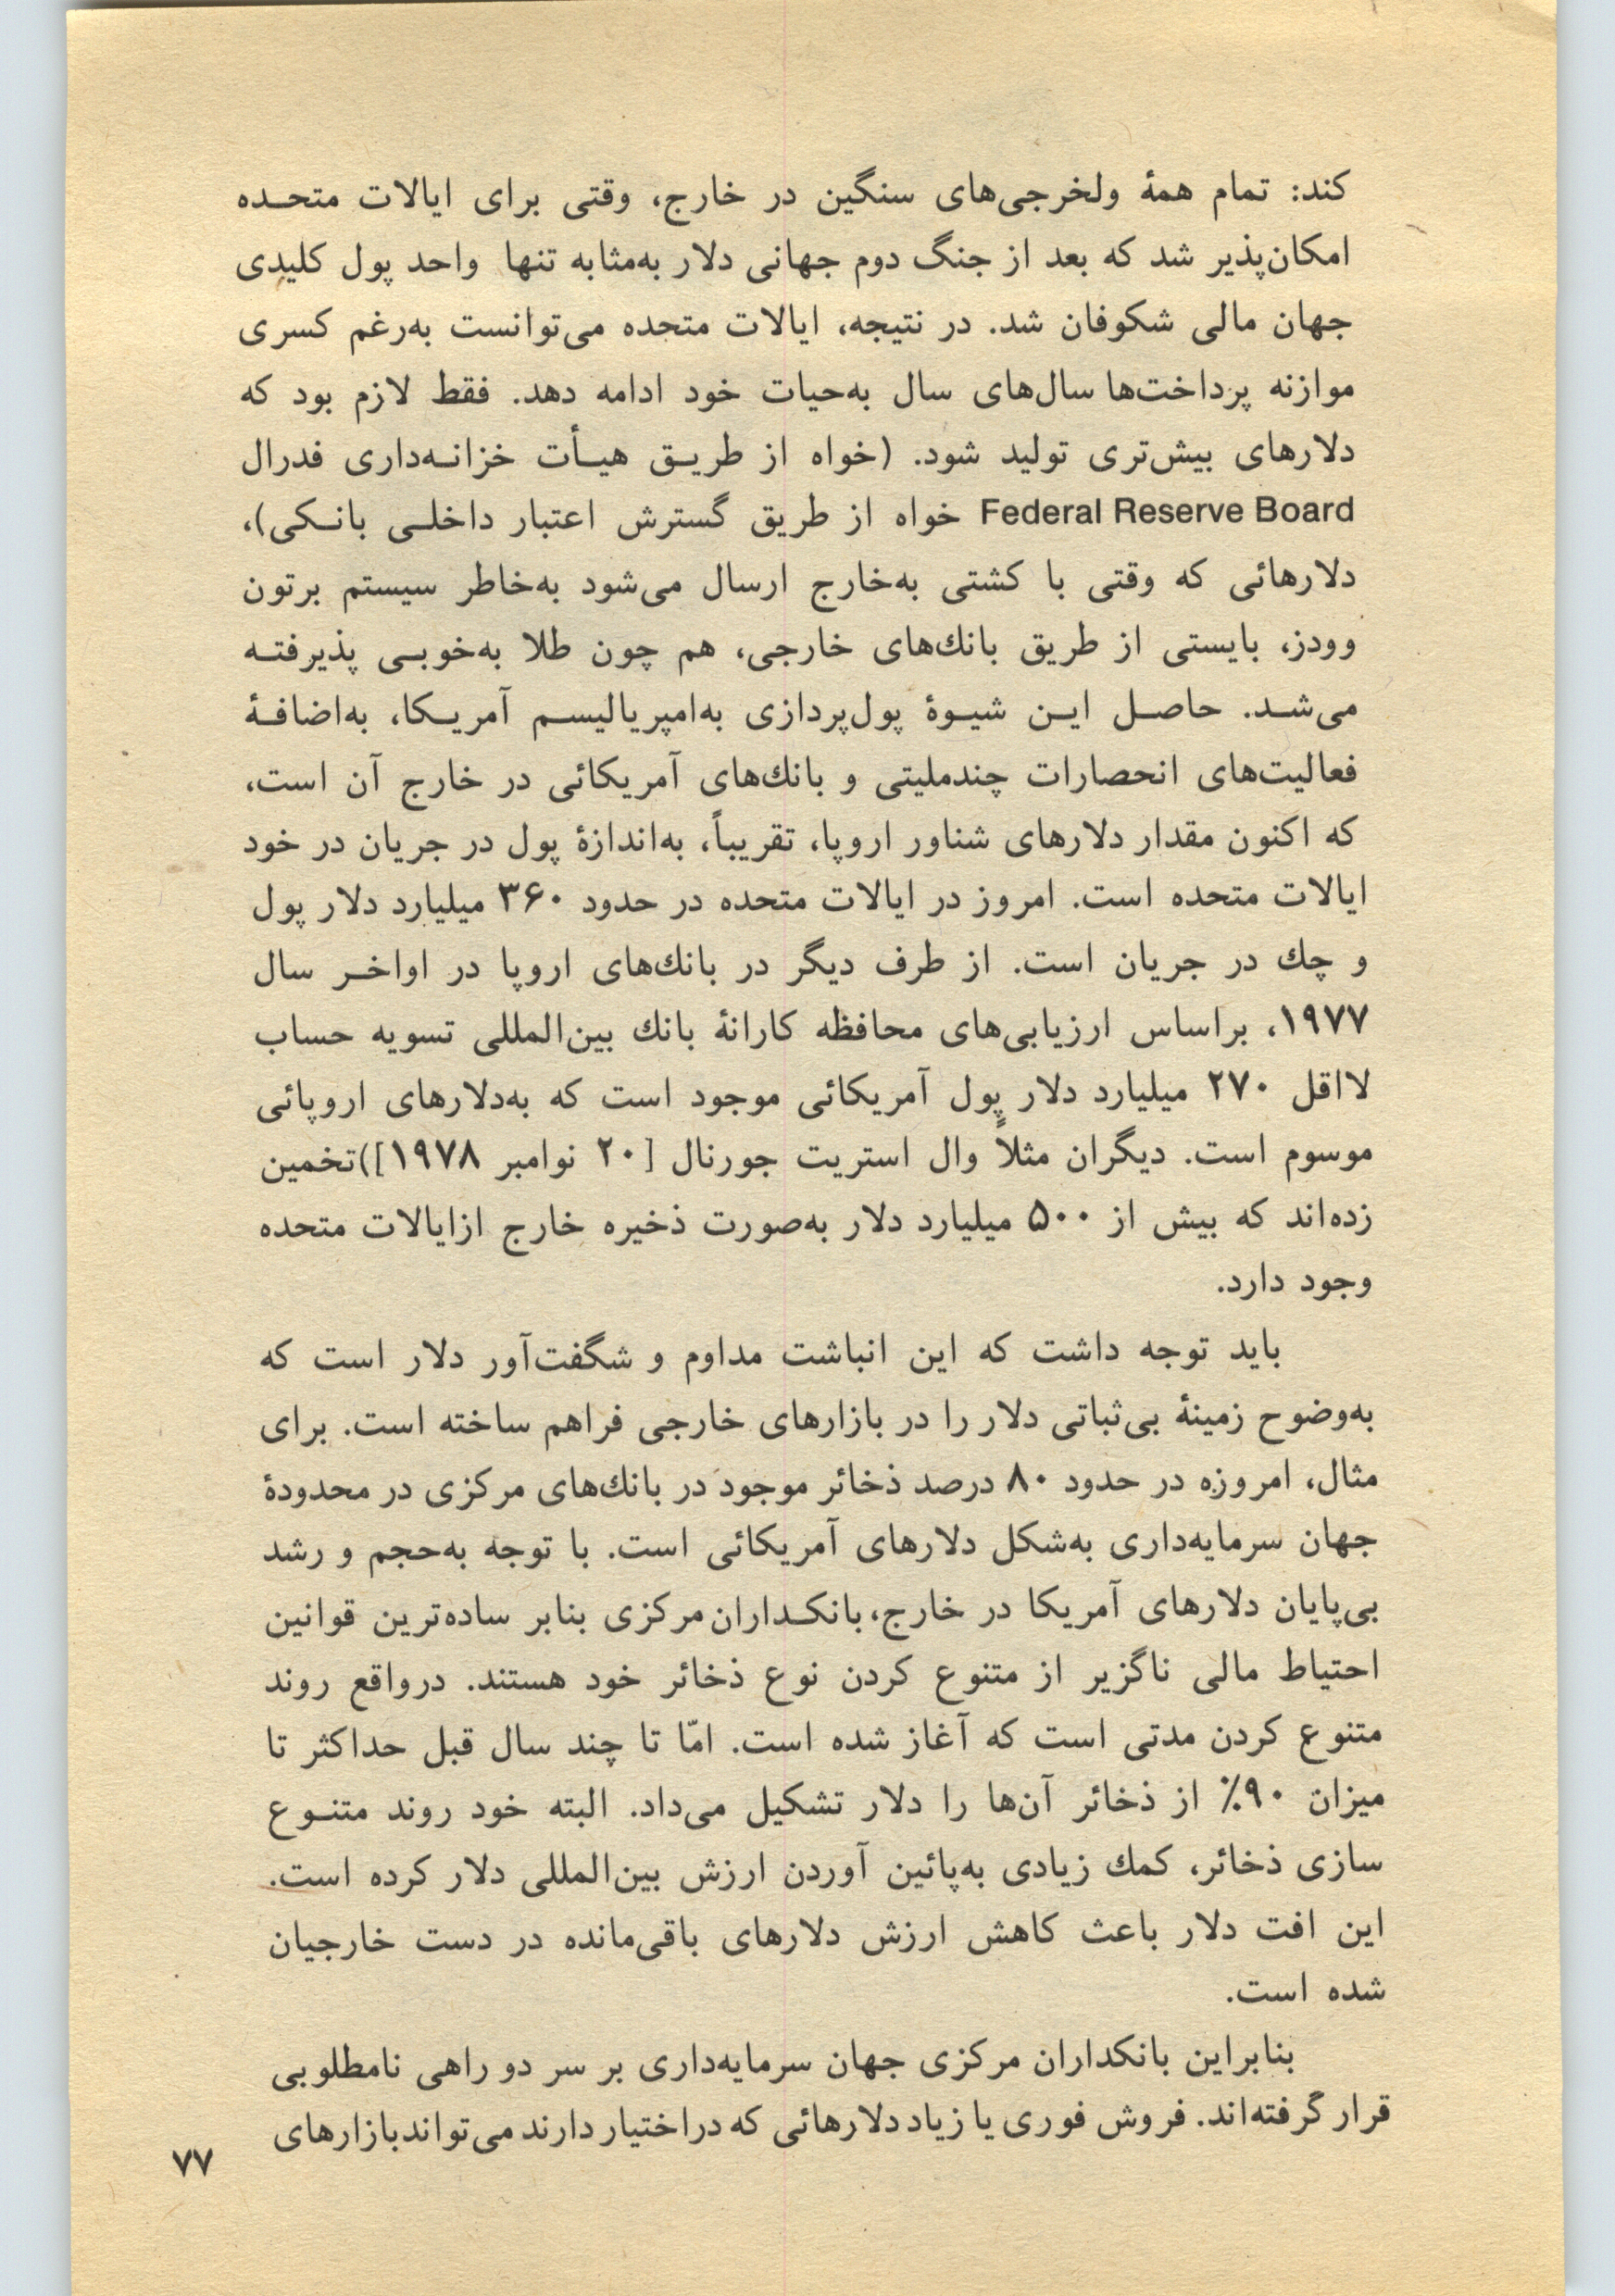 کند: تمام همهٔ ولخرجی‌های سنگین در خارج، وقتی برای ایالات متحـده
امکان‌پذیر شد که بعد از جنگ دوم جهانی دلار به‌مثابه تنها واحد پول کلیدی
جهان مالی شکوفان شد. در نتیجه، ایالات متحده می‌توانست به‌رغم کسری
موازنه پرداخت‌ها سال‌های سال به‌حیات خود ادامه دهد. فقط لازم بود که
دلارهای بیش‌تری تولید شود. (خواه از طریـق هیـأت خزانـه‌داری فدرال
Federal Reserve Board خواه از طریق گسترش اعتبار داخلـی بانـکی)،
دلارهائی که وقتی با کشتی به‌خارج ارسال می‌شود به‌خاطر سیستم برتون
وودز، بایستی از طریق بانك‌های خارجی، هم چون طلا به‌خوبـی پذیرفتـه
می‌شـد. حاصـل ایـن شیـوهٔ پول‌پردازی به‌امپریالیسـم آمریـکا، به‌اضافـهٔ
فعالیت‌های انحصارات چندملیتی و بانك‌های آمریکائی در خارج آن است،
که اکنون مقدار دلارهای شناور اروپا، تقریباً، به‌اندازهٔ پول در جریان در خود
ایالات متحده است. امروز در ایالات متحده در حدود ۳۶۰ میلیارد دلار پول
و چك در جریان است. از طرف دیگر در بانك‌های اروپا در اواخـر سال
۱۹۷۷، براساس ارزیابی‌های محافظه کارانهٔ بانك بین‌المللی تسویه حساب
لااقل ۲۷۰ میلیارد دلار پول آمریکائی موجود است که به‌دلارهای اروپائی
موسوم است. دیگران مثلاً وال استریت جورنال [۲۰ نوامبر ۱۹۷۸])تخمین
زده‌اند که بیش از ۵۰۰ میلیارد دلار به‌صورت ذخیره خارج ازایالات متحده
وجود دارد.
باید توجه داشت که این انباشت مداوم و شگفت‌آور دلار است که
به‌وضوح زمینهٔ بی‌ثباتی دلار را در بازارهای خارجی فراهم ساخته است. برای
مثال، امروزه در حدود ۸۰ درصد ذخائر موجود در بانك‌های مرکزی در محدودهٔ
جهان سرمایه‌داری به‌شکل دلارهای آمریکائی است. با توجه به‌حجم و رشد
بی‌پایان دلارهای آمریکا در خارج، بانکـداران مرکزی بنابر ساده‌ترین قوانین
احتیاط مالی ناگزیر از متنوع کردن نوع ذخائر خود هستند. درواقع روند
متنوع کردن مدتی است که آغاز شده است. امّا تا چند سال قبل حداکثر تا
میزان ۹۰٪ از ذخائر آن‌ها را دلار تشکیل می‌داد. البته خود روند متنـوع
سازی ذخائر، کمك زیادی به‌پائین آوردن ارزش بین‌المللی دلار کرده است.
این افت دلار باعث کاهش ارزش دلارهای باقی‌مانده در دست خارجیان
شده است.
بنابراین بانکداران مرکزی جهان سرمایه‌داری بر سر دو راهی نامطلوبی
قرار گرفته‌اند. فروش فوری یا زیاد دلارهائی که دراختیار دارند می‌تواند بازارهای
۷۷